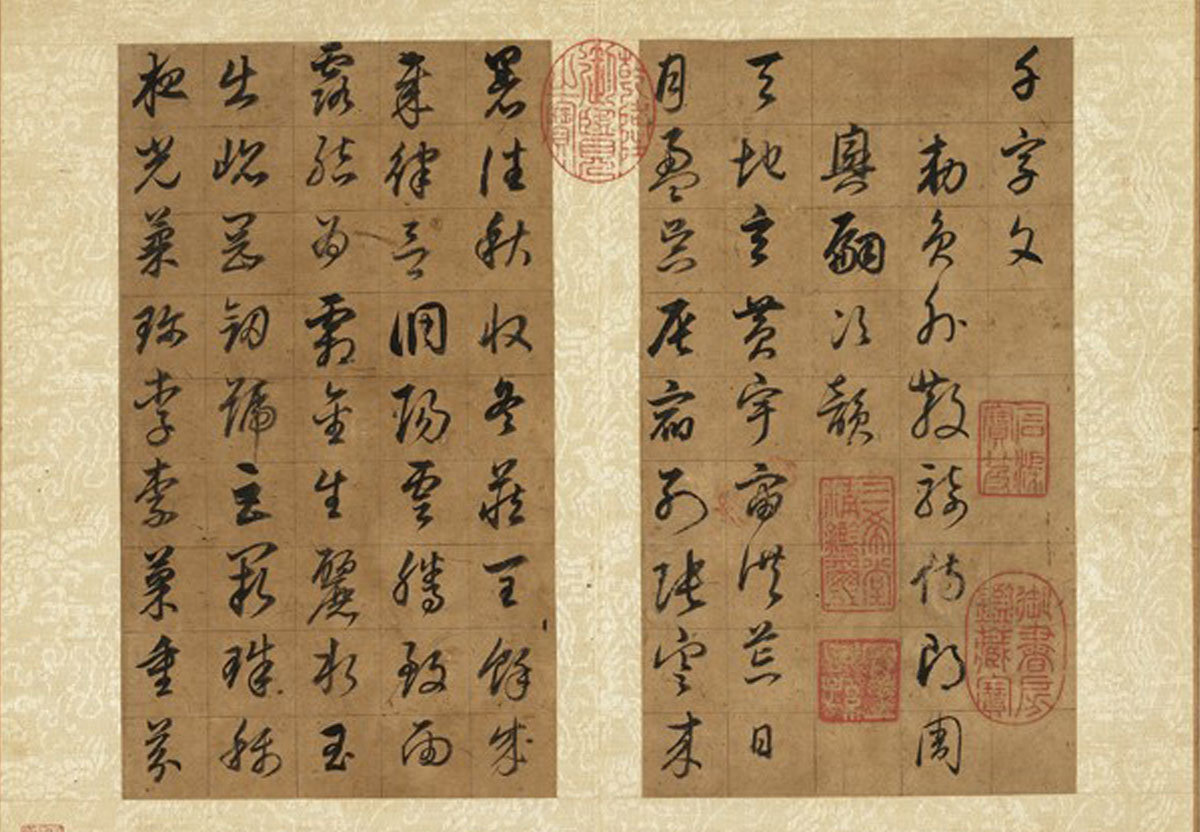 千字文
勅員外散騎侍郎周
興嗣次韻
天地玄黃宇宙洪荒日
月盈昃辰宿列張寒来
暑往秋收冬藏閏餘成
歲律呂調陽雲騰致雨
露結為霜金生麗水玉
出崑崗劒號巨闕珠稱
夜光菓珍李柰菜重芥
石渠寶笈
御書房鑑藏寶
三希堂精鑑璽
乾隆御覽之寶